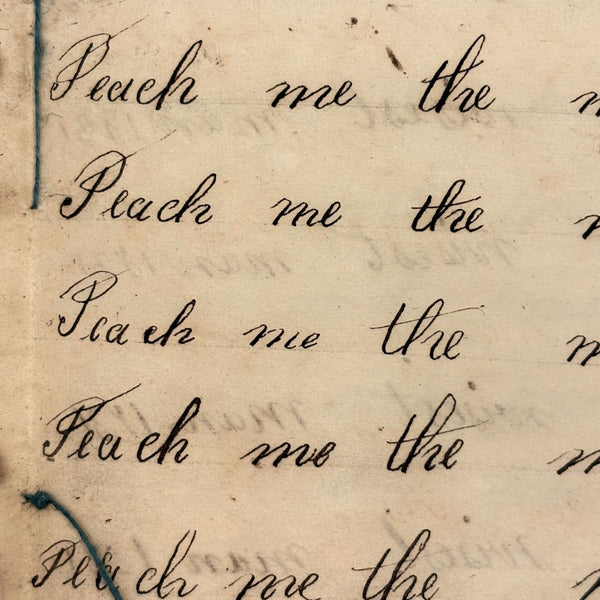 Peach me the
Peach me the
Peach me the
Peach me the
Peach me the